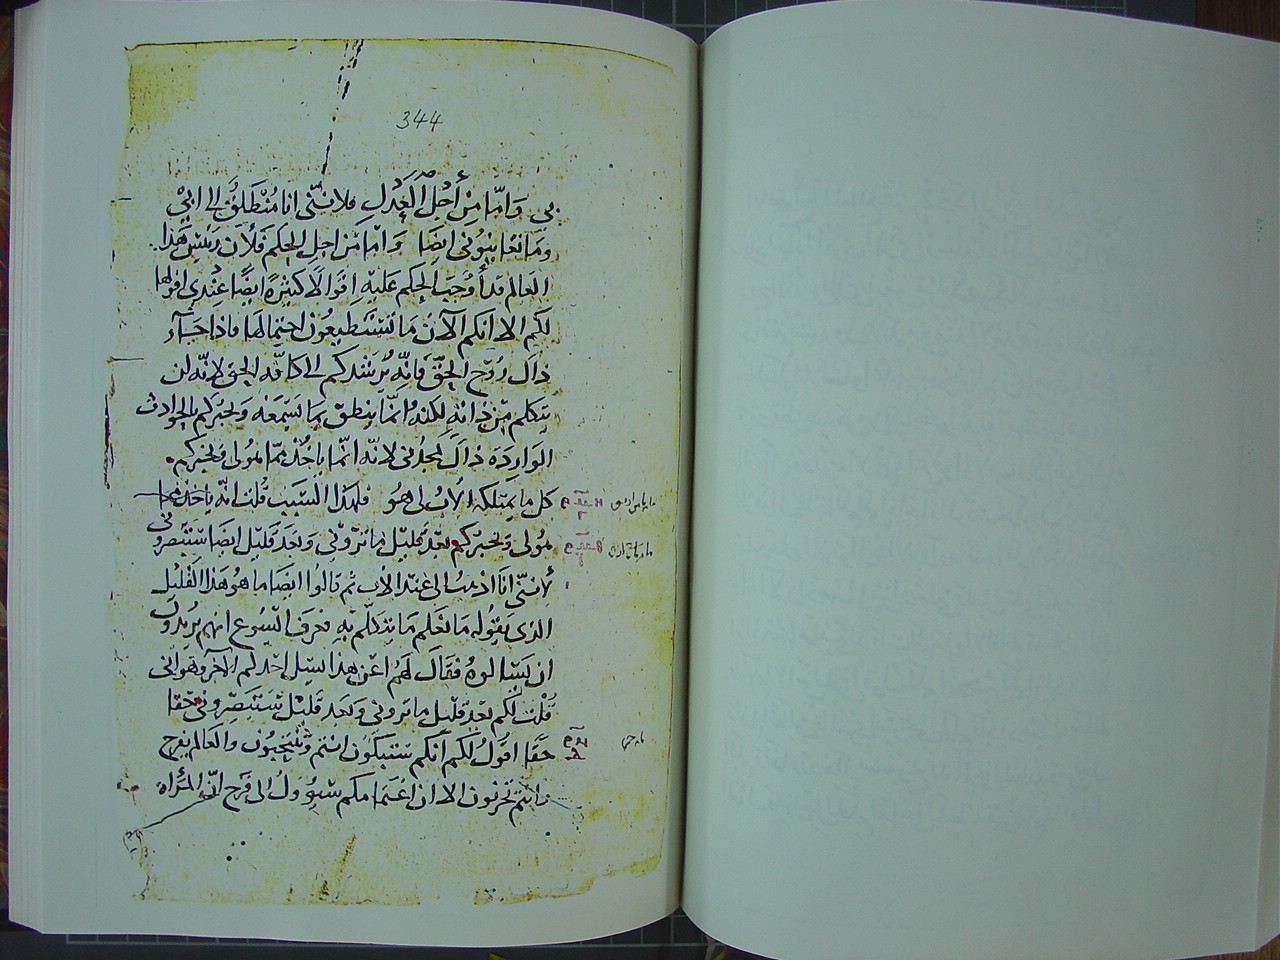 344
بي وَامّا مِنْ أَجْلِ الْعَدْلِ فلانّني انا مُنْطَلِقٌ الى ابيْ
وما تعاينوني ايضَا وَامّا من اجل الحكم فلأن رئيس هَذا
العَالم قد أُوجَبَ الحكم عليْهِ اقوالًا كثيرةً ايضًا عِنْدي اقولها
لكم الا انكم الآن مَا تستطيعون احتمالها فاذا جَآء
ذاك رُوح الحقّ فَانّه يُرشدكم الى كافّه الحق لانّه لن
يتكلم مِن ذاته لكنهُ انمَا ينطق بما يَسمَعَهُ ويخبّركم بالحوادث
الوارِدَة ذاك يمجدُني لانّه انّما ياخُذ ممّا هو لي ويخبركم
كل ما يمتلكه الأب لي هُوَ فلهذا السَّبب قُلت انّه ياخذ مما
هو لي ويخبّركم بعد قليل ما تروْني وبَعد قليْل ايضا ستبصروني
لانّني انَا اذهبُ الى عند الأب ثم قالوُا ايضَا ما هُو هَذا القليْل
الذي يَقولهُ مَا نعْلم مَا يتكلّم بِهِ فعَرفَ اليسُوع انهم يُريدُون
ان يَسْالوهُ فقالَ لهُم اعَنْ هذا يسَال احَدكم الآخر وهو اني
قُلت لكم بَعد قليْل ما تروني وبَعد قليْل تستبْصِروني حَقا
حَقا اقولُ لكم انكم ستبكون انتم وتنتحبُون والعَالم يَفرح
وانتم تحزنون الا ان اغتمامكم سَيؤولُ الى فرح انّ المرأه